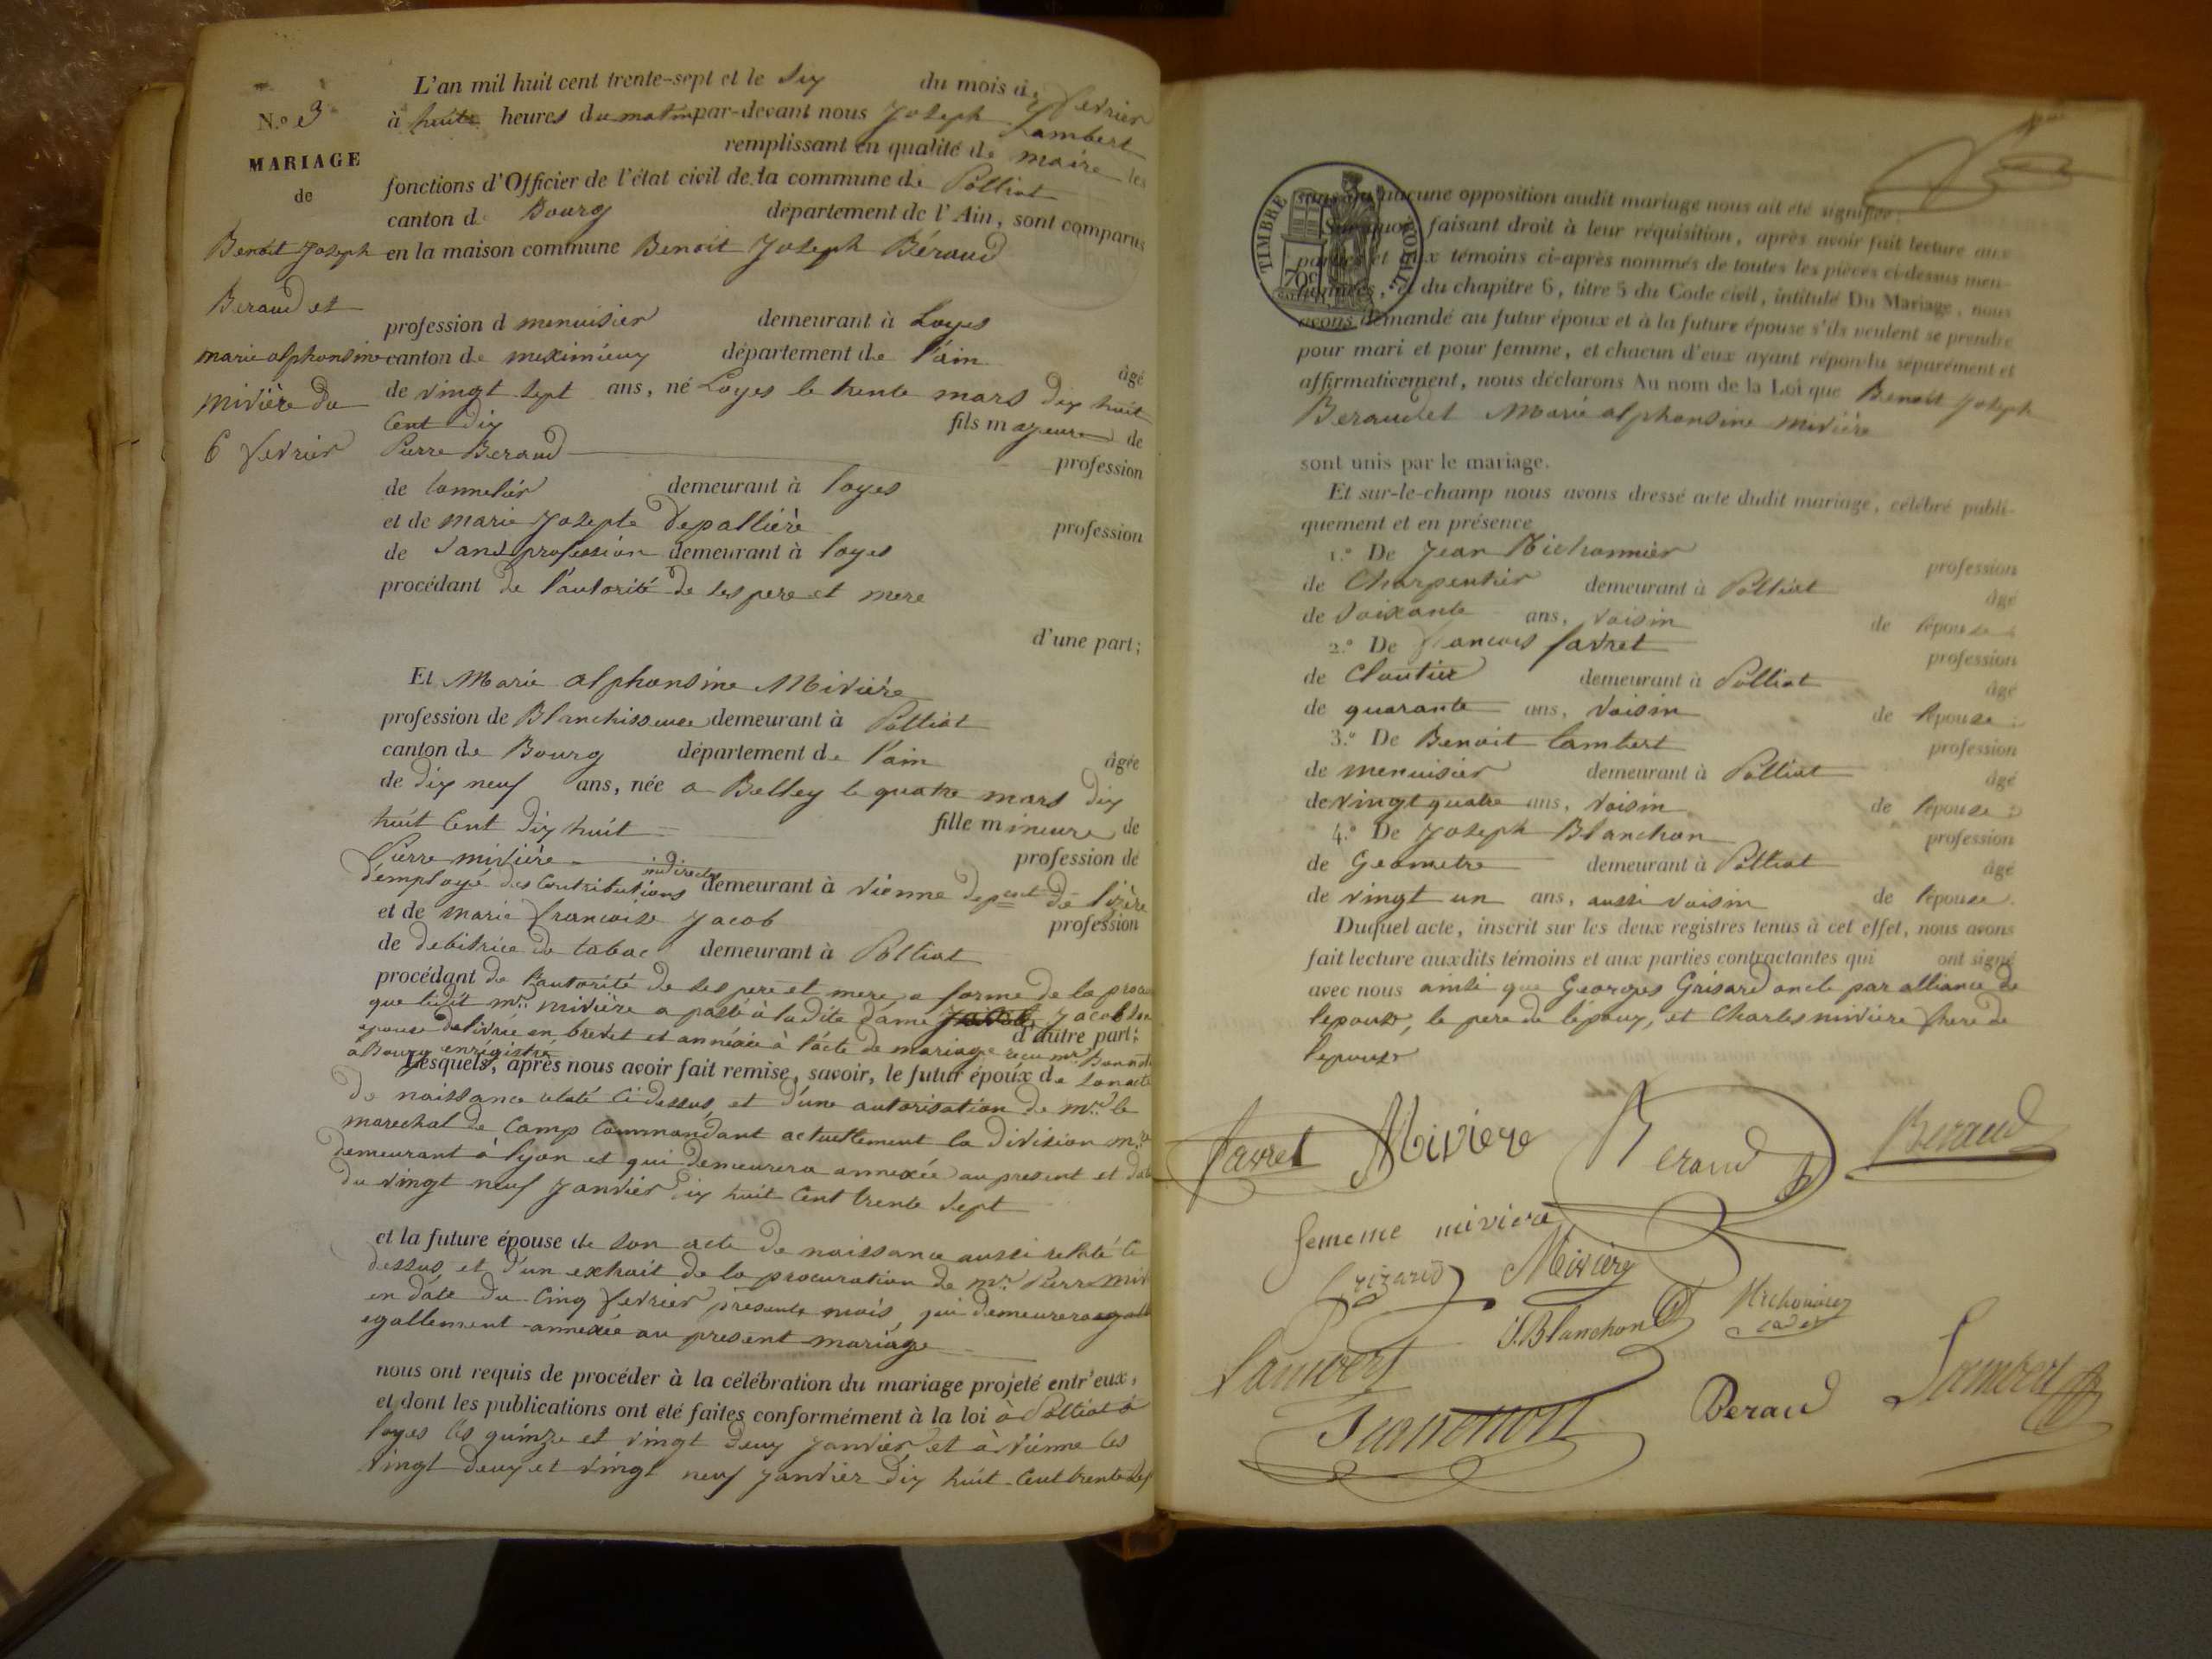 N.º 3
MARIAGE
de
Benoit Joseph
Beraud et
marie alphonsine
mivière du
6 fevrier
L'an mil huit cent trente-sept et le six du mois de fevrier
à huit heures du matin par-devant nous Joseph Lambert
remplissant en qualité de maire les
fonctions d'Officier de l'état civil de la commune de Polliat
canton de Bourg département de l'Ain, sont comparus
en la maison commune Benoit Joseph Béraud
profession d menuisier demeurant à Loyes
canton de meximieux département de l'ain âgé
de vingt sept ans, né Loyes le trente mars dix huit
cent dix fils majeur de
Pierre Beraud profession
de tonnelier demeurant à loyes
et de marie Josepte Depallière profession
de sans profession demeurant à loyes
procédant de l'autorité de ses pere et mere
d'une part;
Et Marie alphonsine Mivière
profession de Blanchisseuse demeurant à Polliat
canton de Bourg département de l'ain âgée
de dix neuf ans, née a Belley le quatre mars dix
huit cent dix huit fille mineure de
Pierre mivière profession de
d'employé des contributions indirectes demeurant à vienne depent de l'izère
et de marie francoise Jacob profession
de debitrice de tabac demeurant à Polliat
procédant de l'autorité de ses pere et mere, a forme de la
que ledit mr. mivière a passé à ladite dame Jacob
epouse delivrée en brevet et annéxée à l'acte de mariage recu mr.
d'autre part;
à Bourg enrégistré
Lesquels, après nous avoir fait remise, savoir, le futur époux de son acte
de naissance relaté ci dessus, et d'une autorisation de mr. le
marechal de Camp Commandant actuellement la division
demeurant à lyon et qui demeurera annexée au present et
du vingt neuf Janvier dix huit cent trente sept
et la future épouse de son acte de naissance aussi relaté ci
dessus, et d'un extrait de la procuration de mr. Pierre
en date du cinq fevrier présent mois, qui demeurera
egallement annexée au present mariage
nous ont requis de procéder à la célébration du mariage projeté entr'eux,
et dont les publications ont été faites conformément à la loi à Polliat à
loyes les quinze et vingt deux Janvier et à vienne les
vingt deux et vingt neuf Janvier dix huit cent trente sept
TIMBRE ROYAL
70c
sans qu'aucune opposition audit mariage nous ait été signifiée.
Sur quoi, faisant droit à leur réquisition, après avoir fait lecture aux
parties et aux témoins ci-après nommés de toutes les pièces ci-dessus men-
tionnées, et du chapitre 6, titre 5 du Code civil, intitulé Du Mariage, nous
avons demandé au futur époux et à la future épouse s'ils veulent se prendre
pour mari et pour femme, et chacun d'eux ayant répondu séparément et
affirmativement, nous déclarons Au nom de la Loi que Benoit Joseph
Beraud et Marie alphonsine mivière
sont unis par le mariage.
Et sur-le-champ nous avons dressé acte dudit mariage, célébré publi-
quement et en présence
1.º De Jean Michonnier profession
de Charpentier demeurant à Polliat âgé
de soixante ans, voisin de l'épouse
2.º De francois favret profession
de Cloutier demeurant à Polliat âgé
de quarante ans, voisin de l'épouse
3.º De Benoit lambert profession
de menuisier demeurant à Polliat âgé
de vingt quatre ans, voisin de l'épouse
4.º De Joseph Blanchon profession
de Geometre demeurant à Polliat âgé
de vingt un ans, aussi voisin de l'épouse.
Duquel acte, inscrit sur les deux registres tenus à cet effet, nous avons
fait lecture auxdits témoins et aux parties contractantes qui ont signé
avec nous ainsi que Georges Grisard oncle par alliance de
l'epouse, le pere de l'époux, et Charles mivière frere de
l'epouse
favret Mivière Beraud Beraud
fememe miviere
Grizard Mivière
Lambert J. Blanchon Michonnier
Beraud Lambert